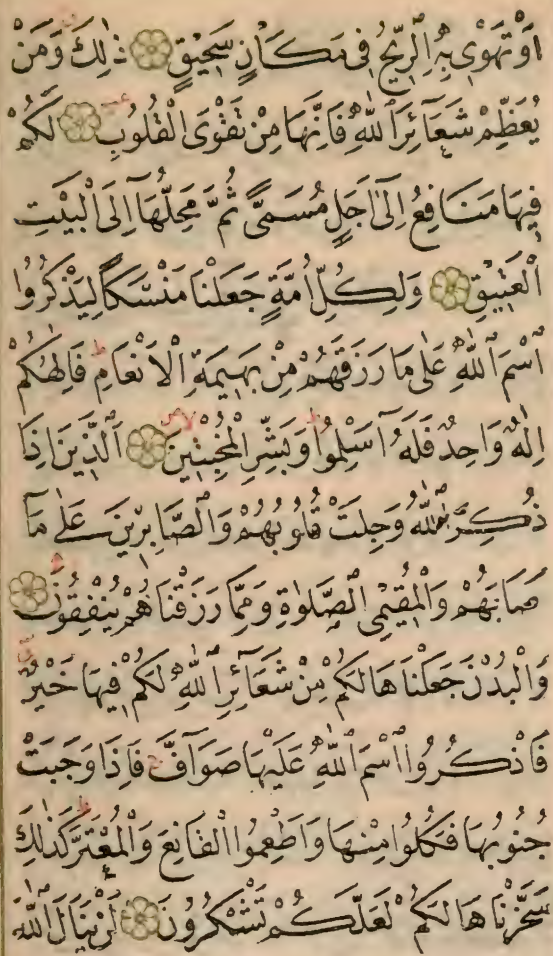 اَوْ تَهْوٖى بِهِ الرّٖيحُ فٖى مَكَانٍ سَحٖيقٍ ذٰلِكَ وَمَنْ
يُعَظِّمْ شَعَٓائِرَ اللّٰهِ فَاِنَّهَا مِنْ تَقْوَى الْقُلُوبِ لَكُمْ
فٖيهَا مَنَافِعُ اِلٰٓى اَجَلٍ مُسَمًّى ثُمَّ مَحِلُّهَٓا اِلَى الْبَيْتِ
الْعَتٖيقِ وَلِكُلِّ اُمَّةٍ جَعَلْنَا مَنْسَكًا لِيَذْكُرُوا
اسْمَ اللّٰهِ عَلٰى مَا رَزَقَهُمْ مِنْ بَهٖيمَةِ الْاَنْعَامِ فَاِلٰهُكُمْ
اِلٰهٌ وَاحِدٌ فَلَهُٓ اَسْلِمُوا وَبَشِّرِ الْمُخْبِتٖينَ اَلَّذٖينَ اِذَا
ذُكِرَ اللّٰهُ وَجِلَتْ قُلُوبُهُمْ وَالصَّابِرٖينَ عَلٰى مَٓا
صَابَهُمْ وَالْمُقٖيمِى الصَّلٰوةِ وَمِمَّا رَزَقْنَاهُمْ يُنْفِقُونَ
وَالْبُدْنَ جَعَلْنَاهَا لَكُمْ مِنْ شَعَٓائِرِ اللّٰهِ لَكُمْ فٖيهَا خَيْرٌ
فَاذْكُرُوا اسْمَ اللّٰهِ عَلَيْهَا صَوَٓافَّ فَاِذَا وَجَبَتْ
جُنُوبُهَا فَكُلُوا مِنْهَا وَاَطْعِمُوا الْقَانِعَ وَالْمُعْتَرَّ كَذٰلِكَ
سَخَّرْنَاهَا لَكُمْ لَعَلَّكُمْ تَشْكُرُونَ لَنْ يَنَالَ اللّٰهَ